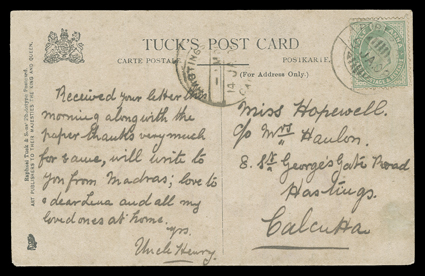 TUCK'S POST CARD
CARTE POSTALE
POSTKARTE.
(For Address Only.)
HASTINGS
14 JA
Raphael Tuck & Sons'
ART PUBLISHERS TO THEIR MAJESTIES THE KING AND QUEEN.
Received your letter this
morning along with the
paper thanks very much
for same, will write to
you from Madras; love to
dear Lena and all my
loved ones at home.
Yrs.
Uncle Henry.
Miss Hopewell.
c/o Mrs Hanlon.
8. St. George's Gate Road
Hastings.
Calcutta